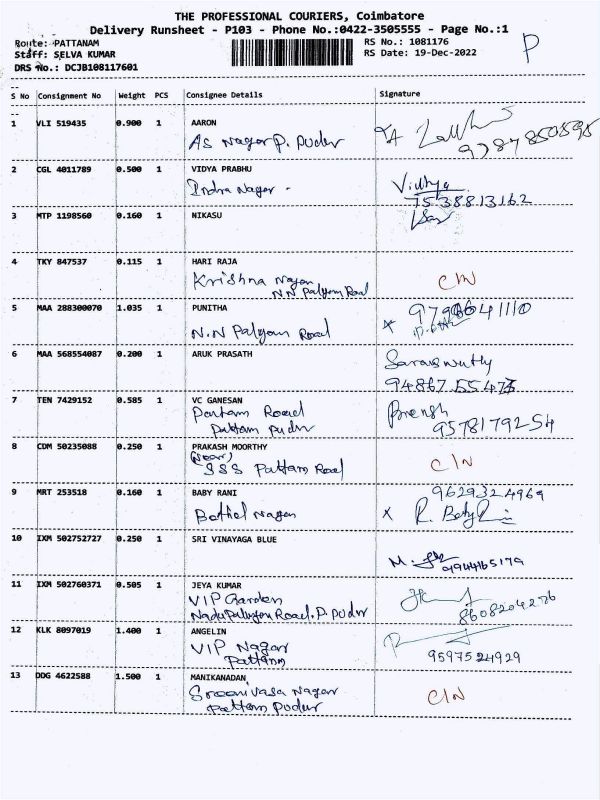 THE PROFESSIONAL COURIERS, Coimbatore
Delivery Runsheet - P103 - Phone No.:0422-3505555 - Page No.:1
Route: PATTANAM RS No.: 1081176 P
Staff: SELVA KUMAR RS Date: 19-Dec-2022
DRS No.: DCJB108117601
S No Consignment No Weight PCS Consignee Details Signature
1 VLI 519435 0.900 1 AARON
AS Nagar P. Pudur
2 CGL 4011789 0.500 1 VIDYA PRABHU
Indra Nagar - Vidhya
7538813162
3 MTP 1198560 0.160 1 NIKASU
4 TKY 847537 0.115 1 HARI RAJA
Krishna Nagar C/N
N N Palyam Road
5 MAA 288300070 1.035 1 PUNITHA
N.N Palyam Road x
6 MAA 568554087 0.200 1 ARUK PRASATH
Saraswathy
7 TEN 7429152 0.585 1 VC GANESAN
Pattam Road
Pattam Pudur 9578179254
8 CDM 50235088 0.250 1 PRAKASH MOORTHY
(Near)
SSS Pattam Road C/N
9 MRT 253518 0.160 1 BABY RANI 9629324969
Bethel Nagar x R. Baby
10 IXM 502752727 0.250 1 SRI VINAYAGA BLUE
11 IXM 502760371 0.505 1 JEYA KUMAR
VIP Garden
Nadupalayam Road. P. Pudur 8608204276
12 KLK 8097019 1.400 1 ANGELIN
VIP Nagar
Pattanm 9597524929
13 DDG 4622588 1.500 1 MANIKANADAN
Sreenivasa Nagar C/N
Pattam Pudur